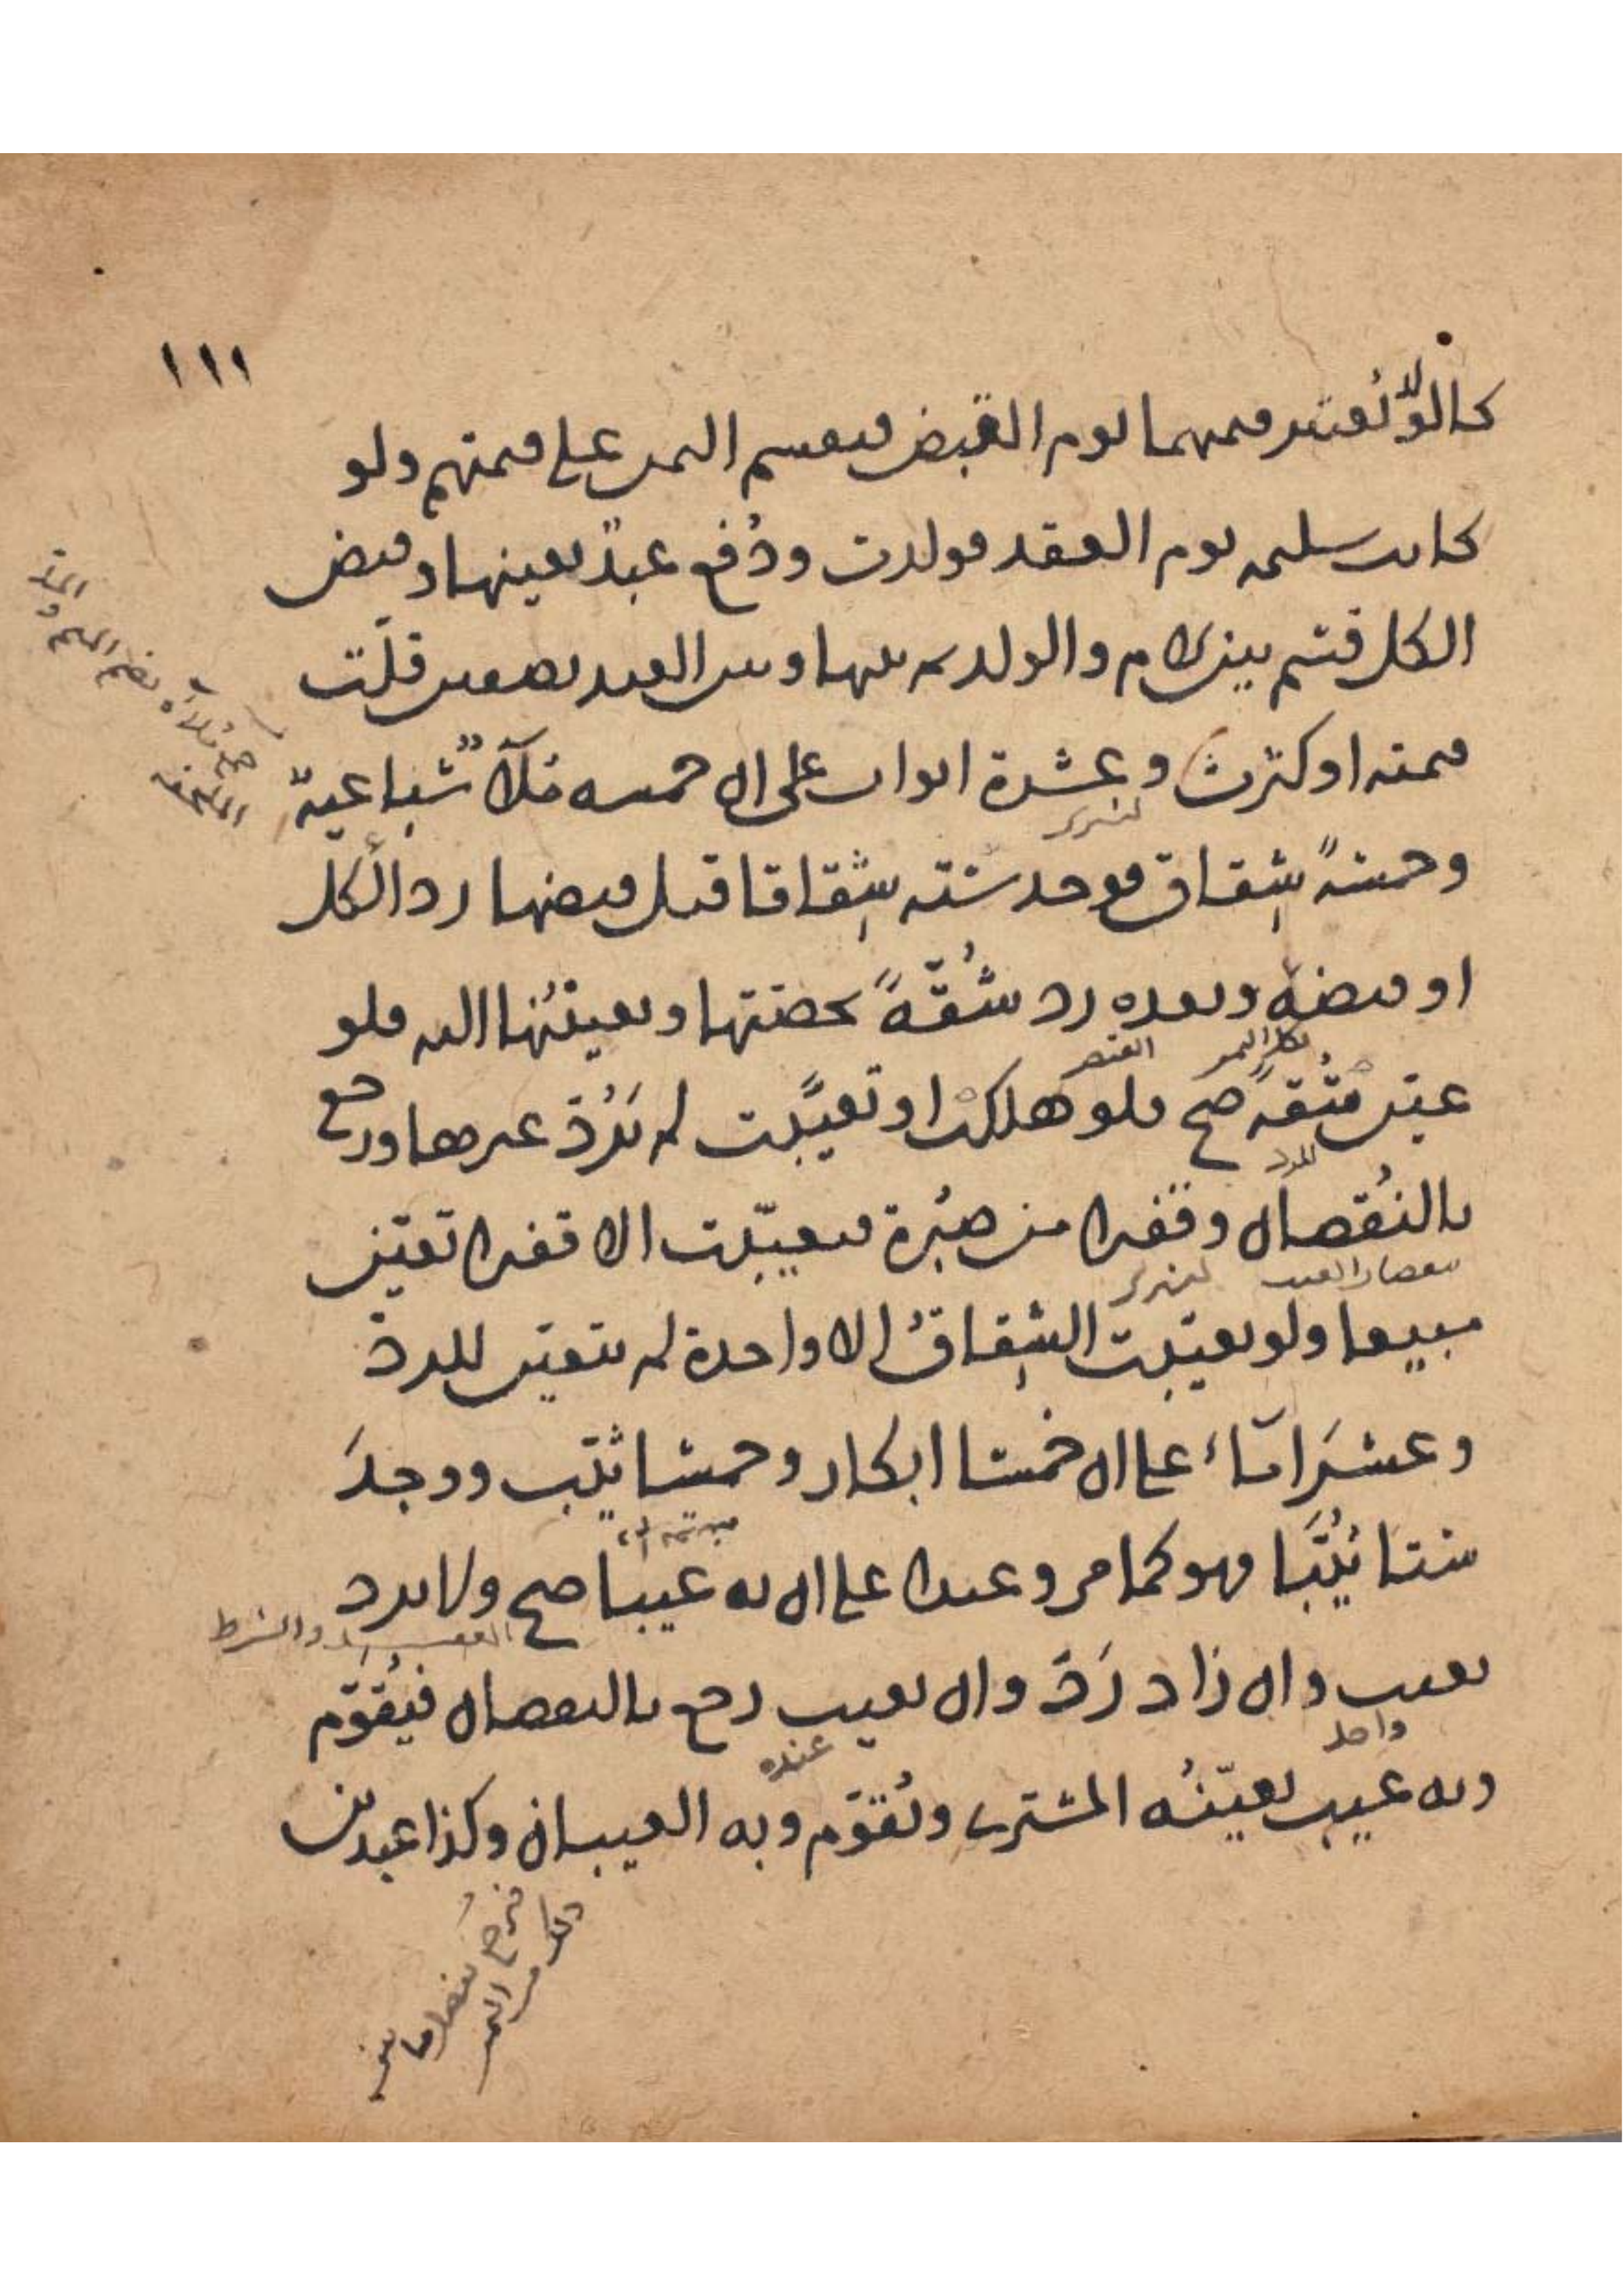 ١١١
كالولا تعتبر قيمتهما يوم القبض فيقسم الثمن على قيمتهم ولو
كانت سليمة يوم العقد فولدت ودفع عبد بعينها وقبض
الكل قسم بين الام والولد ثم بينها وبين العبد نصفين قلت
قيمته او كثرت وعشرة اثواب على ان خمسه ملآ سباعية
وخمسة شقاق فوجد ستة شقاقا قبل قبضها رد الكل
او قبضه وبعده رد شقة بحصتها وتعيينها اليه فلو
عين شقة صح فلو هلكت او تعيبت لم يرد غيرها ورجع
بالنقصان وقفيزا من صبرة فتعيبت الا قفيزا تعين
مبيعا ولو تعيبت الشقاق الا واحدة لم يتعين للرد
وعشر اماء على ان خمسا ابكار وخمسا ثيب ووجد
ستا ثيبا فهو كما مر وعبدا على ان به عيبا صح ولا يرد
بعيب وان زاد رد وان تعيب رجع بالنقصان فيقوم
وبه عيب يعينه المشتري ويقوم وبه العيبان وكذا عبدين
بضم الميم والمد
الملحفة
بكل الثمن
القبض
للرد
نقصان العيب
واحد
عنده
والشرط
من الثمن